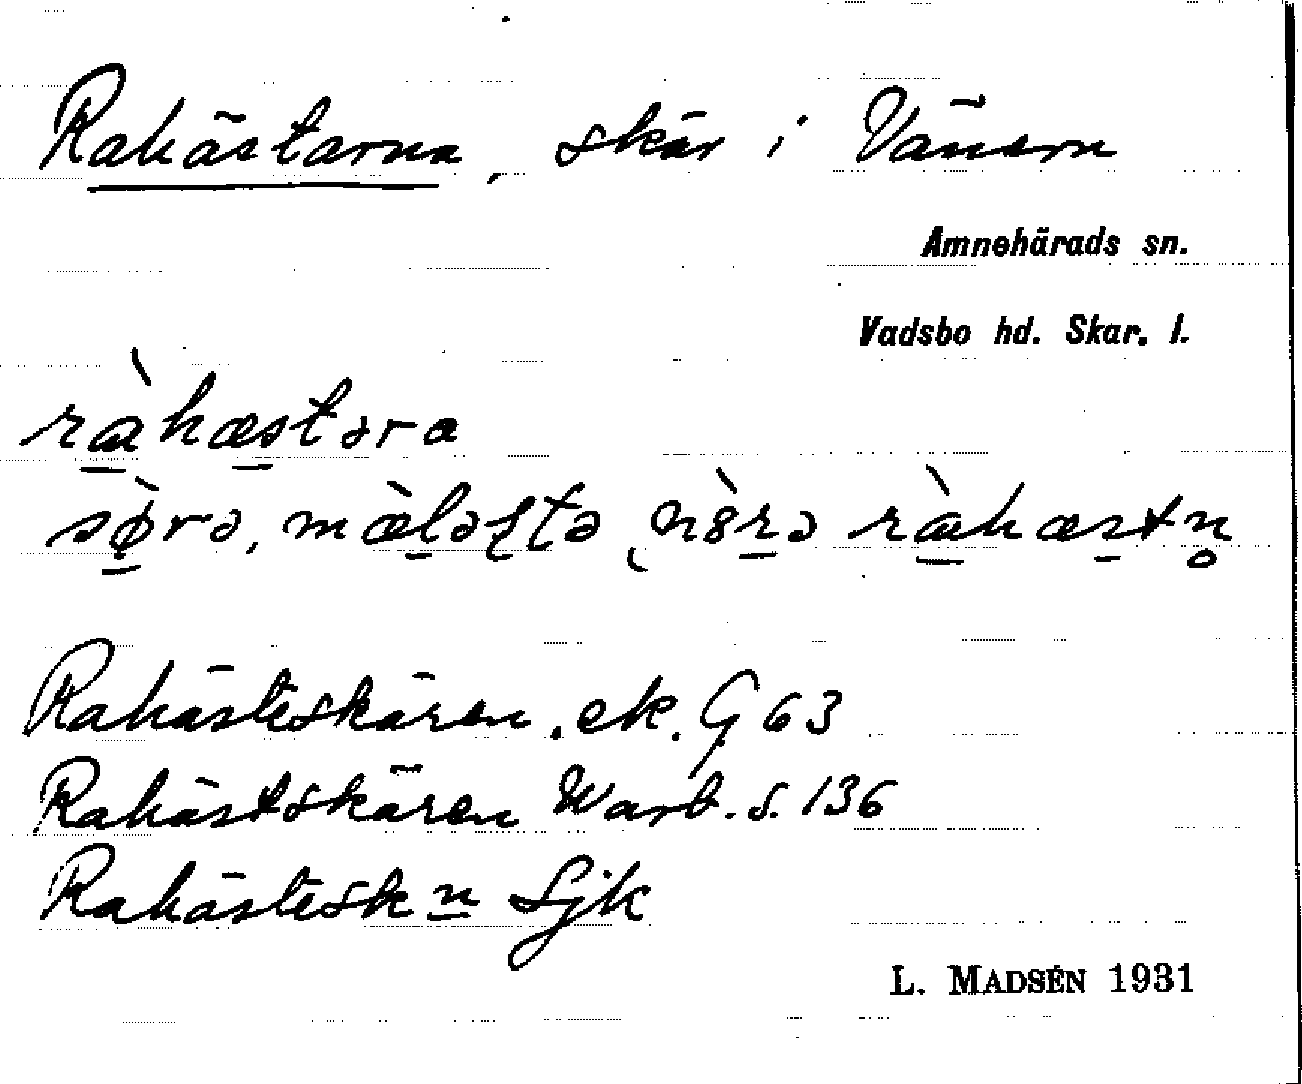 Rahästarna, skär i Vänern
Amnehärads sn.
Vadsbo hd. Skar. l.
ràhæstəra
sø̀rə, mæ̀ləstə, nòrə ràhæstn̥
Rahästeskären. ek. G 63
Rahästskären Warb. s. 136
Rahästeskn Sjk
L. MADSÉN 1931